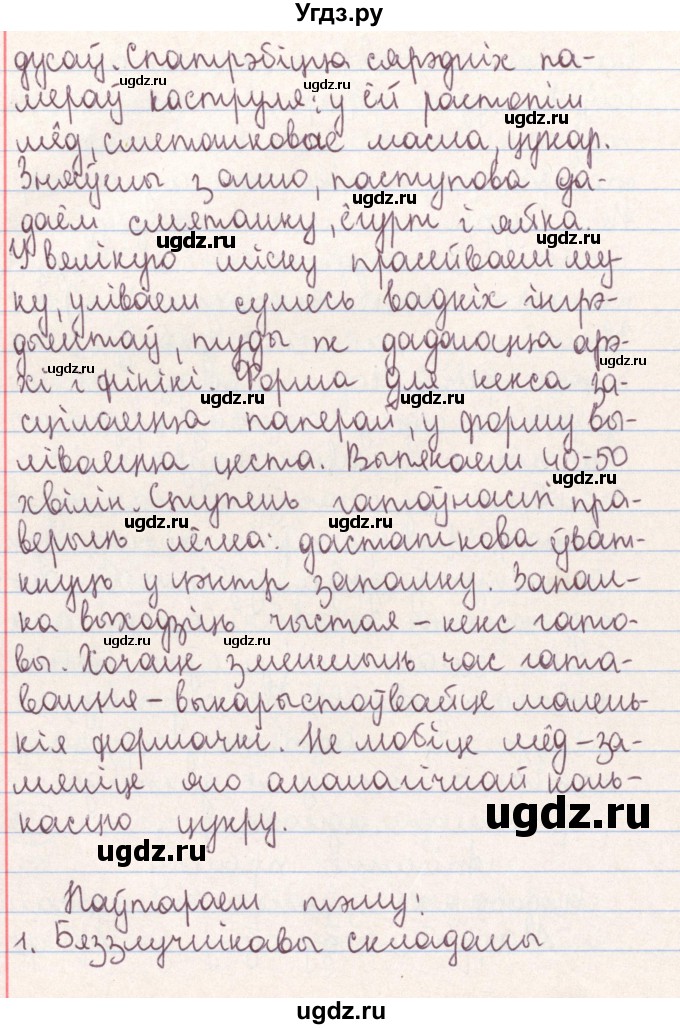 Угдз.ру
дусаў. Спатрэбіцца сярэдніх па-
мераў каструля: у ёй растопім
мёд, сметанковае масла, цукар.
Зняўшы з агню, паступова да-
даём смятанку, ёгурт і яйка.
У вялікую міску прасейваем му-
ку, уліваем сумесь вадкіх інгрэ-
дыентаў, туды ж дадаюцца арэ-
хі і фінікі. Форма для кекса за-
сцілаецца паперай, у форму вы-
ліваецца цеста. Выпякаем 40-50
хвілін. Ступень гатоўнасці пра-
верыць лёгка: дастаткова ўваты-
кнуць у цэнтр запалку. Запал-
ка выходзіць чыстая – кекс гато-
вы. Хочаце зменшыць час гата-
вання – выкарыстоўвайце малень-
кія формачкі. Не любіце мёд – за-
мяніце яго аналагічнай коль-
касцю цукру.
Паўтараем тэму:
1. Бяззлучнікавы складаны
ugdz.ru
ugdz.ru
ugdz.ru
ugdz.ru
ugdz.ru
ugdz.ru
ugdz.ru
ugdz.ru
ugdz.ru
ugdz.ru
ugdz.ru
ugdz.ru
ugdz.ru
ugdz.ru
ugdz.ru
ugdz.ru
ugdz.ru
ugdz.ru
ugdz.ru